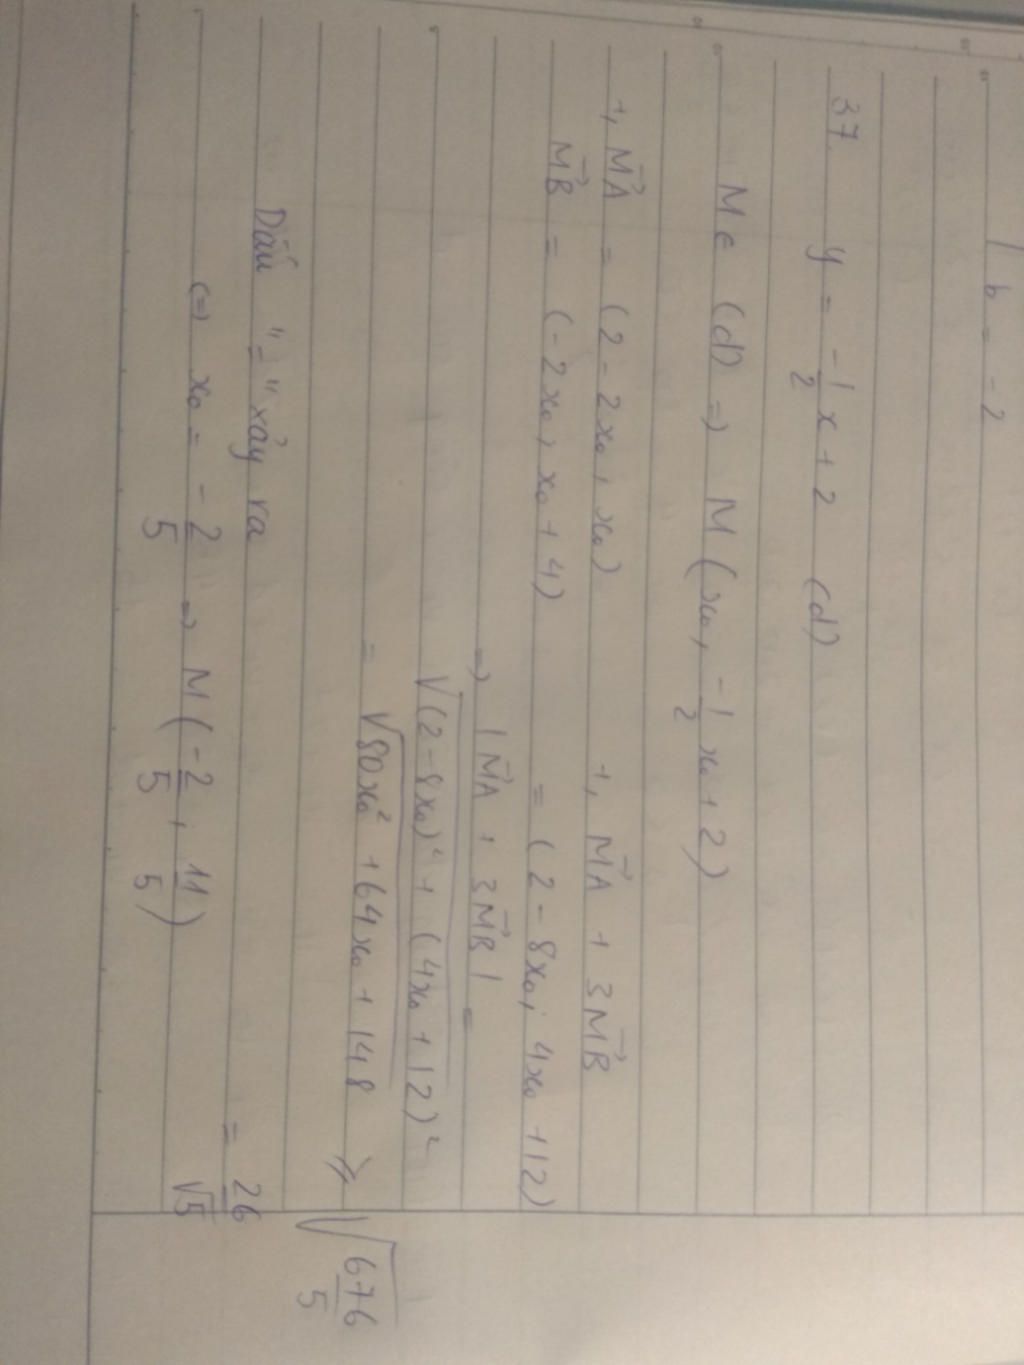 b = -2
37. y = -1/2 x + 2 (d)
M ∈ (d) => M (x₀, -1/2 x₀ + 2)
+, MA→ = (2 - 2x₀, x₀)
MB→ = (-2x₀, x₀ + 4)
+, MA→ + 3MB→
= (2 - 8x₀; 4x₀ + 12)
=> |MA→ + 3MB→| =
√((2 - 8x₀)² + (4x₀ + 12)²)
= √(80x₀² + 64x₀ + 148) ≥ √(676/5)
= 26/√5
Dấu "=" xảy ra
(=) x₀ = -2/5 => M (-2/5, 11/5)